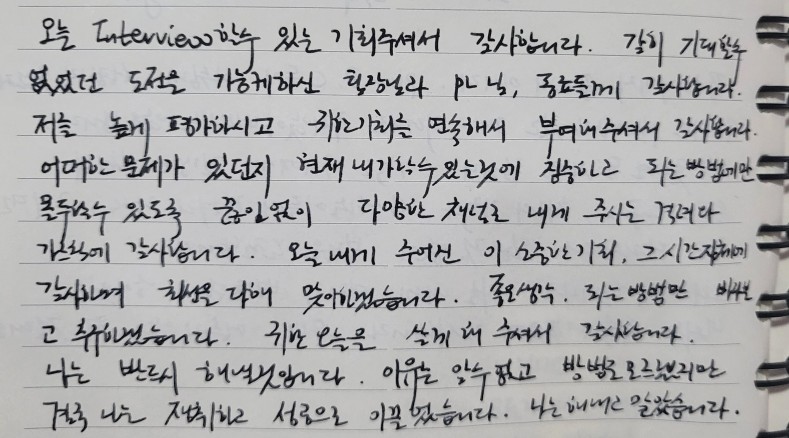 오늘 Interview할수 있는 기회주셔서 감사합니다. 감히 기대할수
없었던 도전을 가능케하신 팀장님과 PL님, 동료들께 감사합니다.
저를 높게 평가하시고 귀한기회를 연속해서 부여해주셔서 감사합니다.
어떠한 문제가 있던지 현재 내가할수있는것에 집중하고 되는방법에만
몰두할수 있도록 끊임없이 다양한 채널로 내게 주시는 격려와
감사합니다. 오늘 내게 주어진 이 소중한기회, 그시간전체에
감사하며 최선을 다해 맞이하겠습니다. 좋은생각. 되는방법만 바라보
고 추구하겠습니다. 귀한 오늘을 살게 해 주셔서 감사합니다.
나는 반드시 해낼것입니다. 이유는 알수 없고 방법도 모르겠지만
결국 나는 쟁취하고 성공으로 이끌었습니다. 나는 해내고 말았습니다.